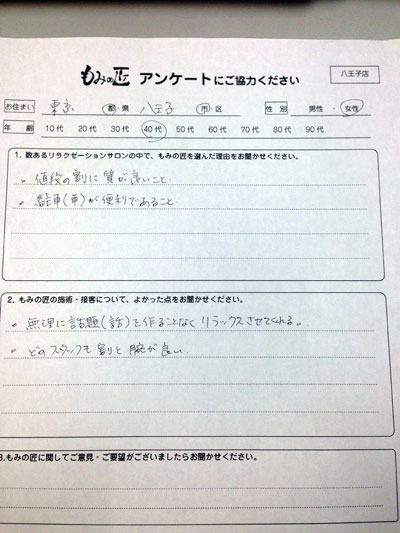 もみの匠 アンケートにご協力ください
八王子店
お住まい 東京 都・県 八王子 市・区 性別 男性・女性
年齢 10代 20代 30代 40代 50代 60代 70代 80代 90代
1. 数あるリラクゼーションサロンの中で、もみの匠を選んだ理由をお聞かせください。
・値段の割に質が良いこと
・駐車(車)が便利であること
2. もみの匠の施術・接客について、よかった点をお聞かせください。
・無理に話題(話)を作ることなくリラックスさせてくれる。
・どのスタッフも割と腕が良い
3.もみの匠に関してご意見・ご要望がございましたらお聞かせください。